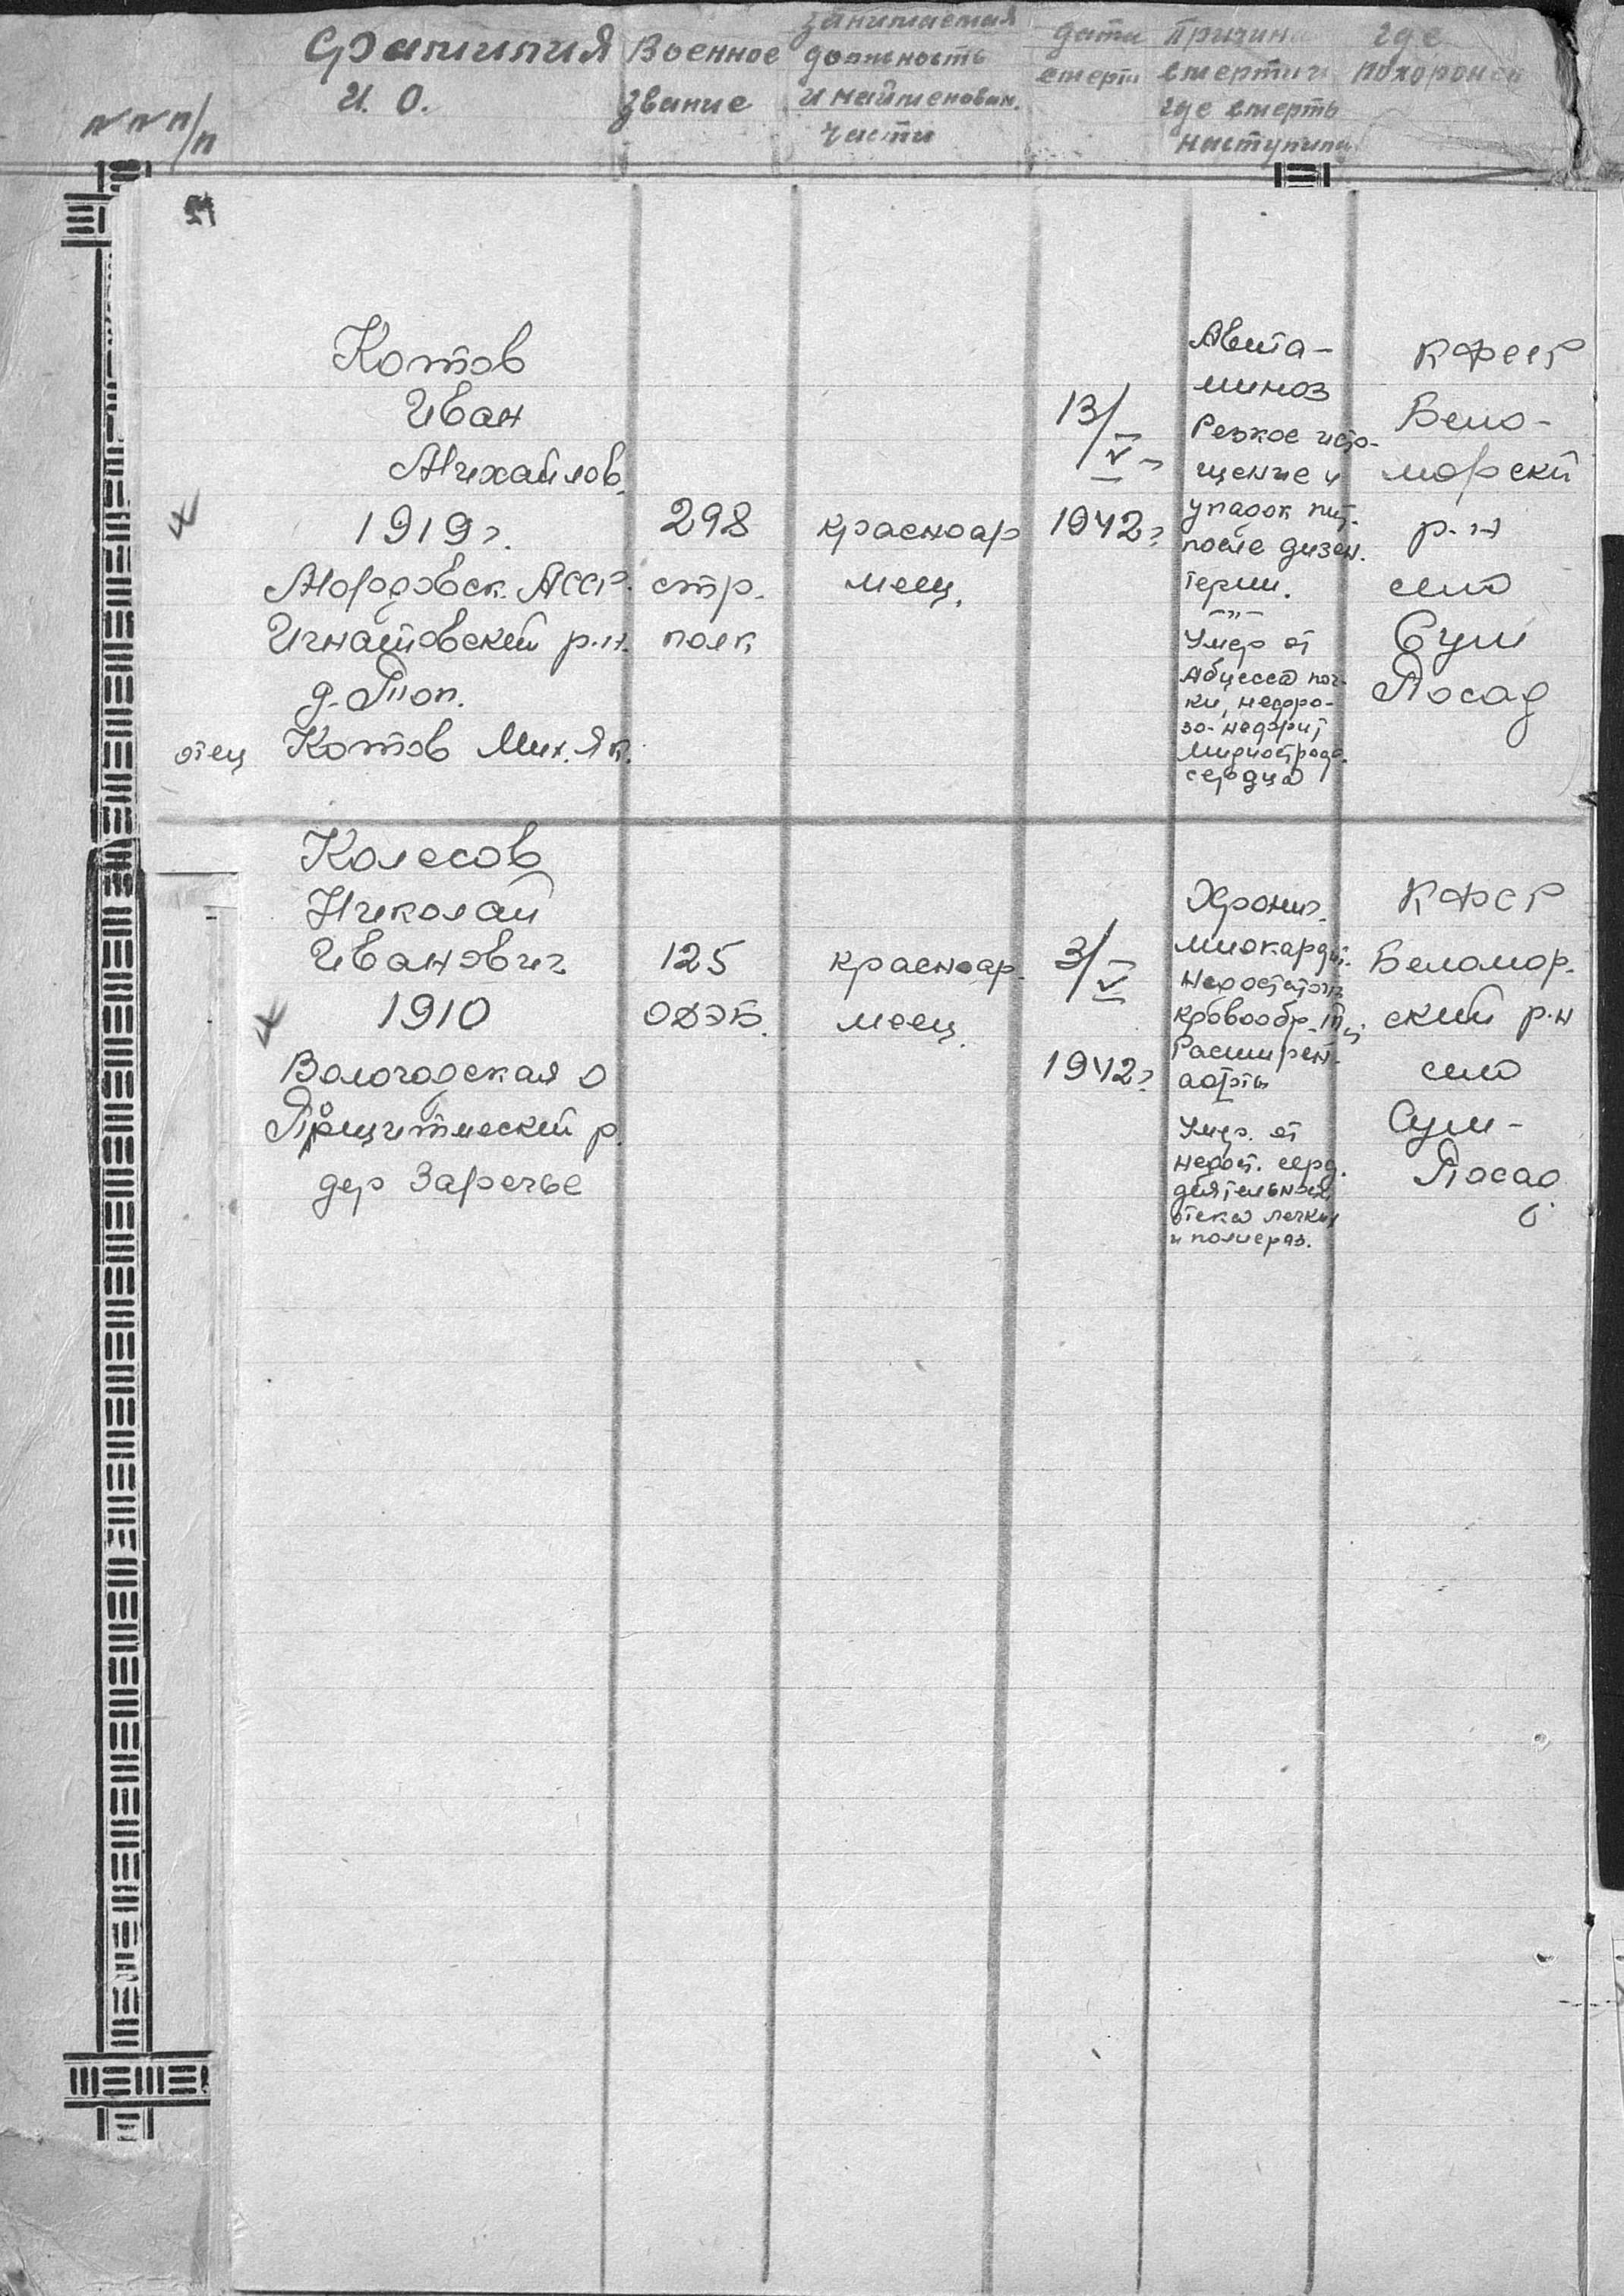 №№ п/п
Фамилия
И. О.
Военное
звание
занимаемая
должность
и найменован.
части
дата
смерти
Причина
смерти и
где смерть
наступила
где
похоронен
Котов
Иван
Михайлов.
1919 г.
Мордовск. АССР.
Игнатовский р.н.
д. Топ.
отец Котов Мих. Як.
298
стр.
полк
красноар
меец.
13/V –
1942 г
Авита-
миноз
Резкое исто-
щение и
упадок пит.
после дизен.
терии.
—„—
Умер от
Абцесса поч-
ки, нефро-
зо-нефрит,
сердца
КФССР
Бело-
морский
р-н
село
Сум
Посад
Колесов
Николай
Иванович
1910
Вологодская о
дер Заречье
125
ОДЭБ.
красноар.
меец.
3/V
1942 г
Хронич.
миокардит.
Недостаточ.
кровообр.
Расширен.
аорты
Умер. от
недост. серд.
деятельност.
отека легких
и полисероз.
КФСР
Беломор.
ский р-н
село
Сум-
Посад